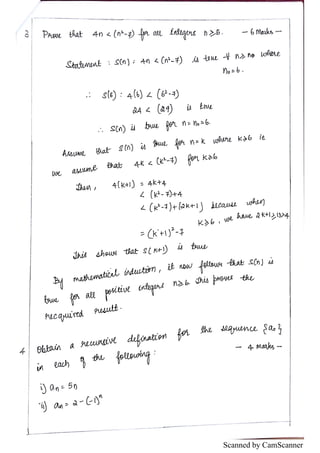 3 Prove that 4n < (n²-7) for all integers n≥6. - 6 Marks -
Statement : S(n) : 4n < (n²-7) is true ∀ n≥n₀ where
n₀=6.
∴ S(6) : 4(6) < (6²-7)
24 < (29) is true
∴ S(n) is true for n=n₀=6
Assume that S(n) is true for n=k where k≥6 ie
we assume that 4k < (k²-7) for k≥6
Then, 4(k+1) = 4k+4
< (k²-7)+4
< (k²-7)+(2k+1) because when
k≥6, we have 2k+1≥13>4
= (k+1)²-7
This shows that S(k+1) is true
By mathematical induction, it now follows that S(n) is
true for all positive integers n≥6. This proves the
required result.
4 Obtain a recursive defination for the sequence {aₙ}
in each of the following : - 4 marks -
i) aₙ = 5n
ii) aₙ = 2-(-1)ⁿ
Scanned by CamScanner